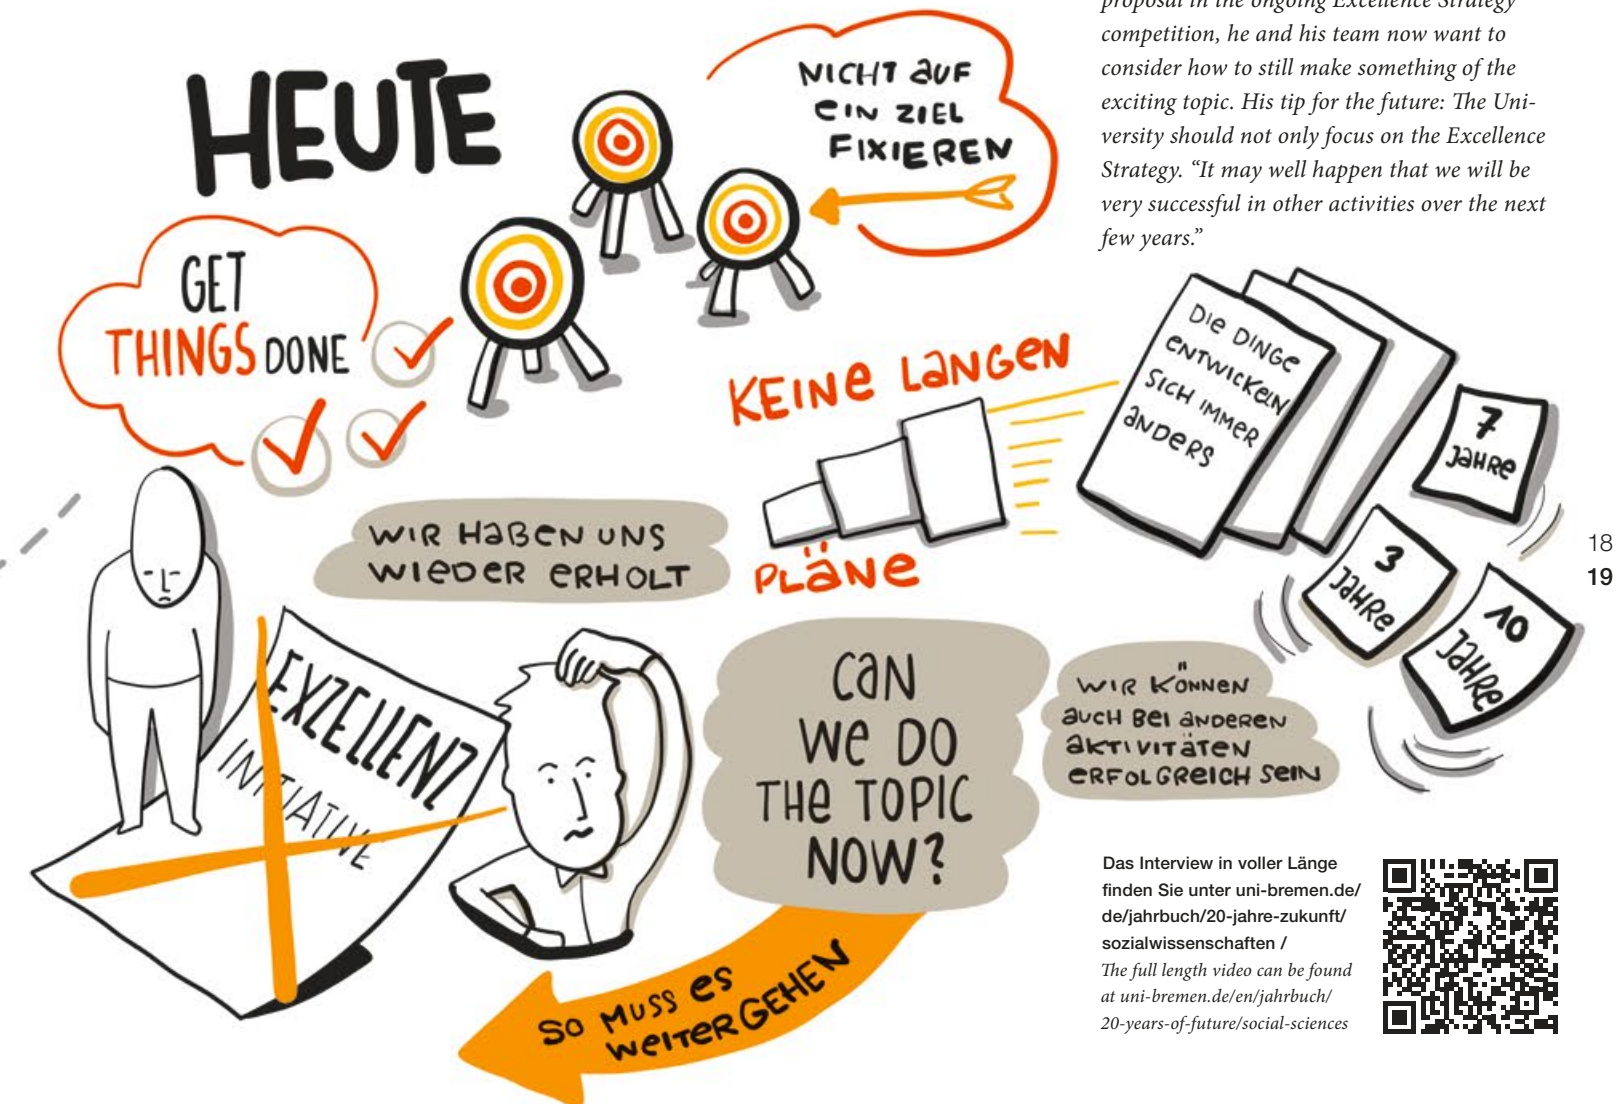 proposal in the ongoing Excellence Strategy
competition, he and his team now want to
consider how to still make something of the
exciting topic. His tip for the future: The Uni-
versity should not only focus on the Excellence
Strategy. “It may well happen that we will be
very successful in other activities over the next
few years.”
HEUTE
NICHT AUF
EIN ZIEL
FIXIEREN
GET
THINGS DONE
KEINE LANGEN
PLÄNE
DIE DINGE
ENTWICKELN
SICH IMMER
ANDERS
7
JAHRE
3
JAHRE
10
JAHRE
18
19
WIR HABEN UNS
WIEDER ERHOLT
EXZELLENZ
INITIATIVE
CAN
WE DO
THE TOPIC
NOW?
WIR KÖNNEN
AUCH BEI ANDEREN
AKTIVITÄTEN
ERFOLGREICH SEIN
SO MUSS ES
WEITERGEHEN
Das Interview in voller Länge
finden Sie unter uni-bremen.de/
de/jahrbuch/20-jahre-zukunft/
sozialwissenschaften /
The full length video can be found
at uni-bremen.de/en/jahrbuch/
20-years-of-future/social-sciences